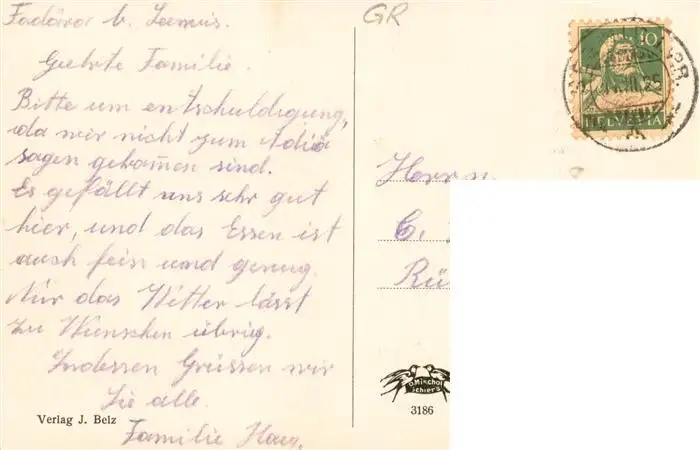 Fadära b. Seewis.
Geehrte Familie.
Bitte um entschuldigung,
da wir nicht zum Adiö
sagen gekommen sind.
Es gefällt uns sehr gut
hier, und das Essen ist
auch fein und genug.
Nur das Wetter lässt
zu Wünschen übrig.
Indessen Grüssen wir
Sie alle.
Familie Haag.
Verlag J. Belz
GR
10
HELVETIA
Herrn
C.
Rü
D. Mischol
Schiers
3186